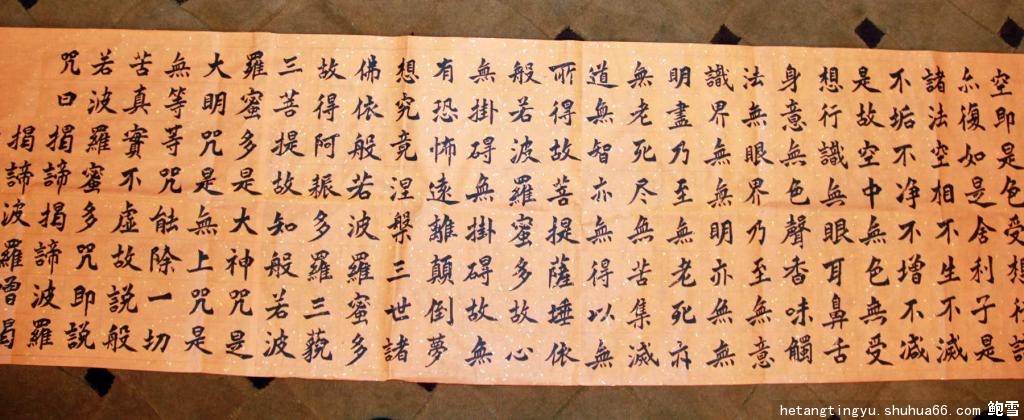 空即是色受想行識
亦復如是舍利子是
諸法空相不生不滅
不垢不净不增不减
是故空中無色無受
想行識無眼耳鼻舌
身意無色聲香味觸
法無眼界乃至無意
識界無無明亦無無
明盡乃至無老死亦
無老死尽無苦集滅
道無智亦無得以無
所得故菩提薩埵依
般若波羅蜜多故心
無掛碍無掛碍故無
有恐怖遠離顛倒夢
想究竟涅槃三世諸
佛依般若波羅蜜多
故得阿耨多羅三藐
三菩提故知般若波
羅蜜多是大神咒是
大明咒是無上咒是
無等等咒能除一切
苦真實不虛故説般
若波羅蜜多咒即説
咒曰揭諦揭諦波羅
揭諦波羅僧揭
hetangtingyu.shuhua66.com 鲍雪